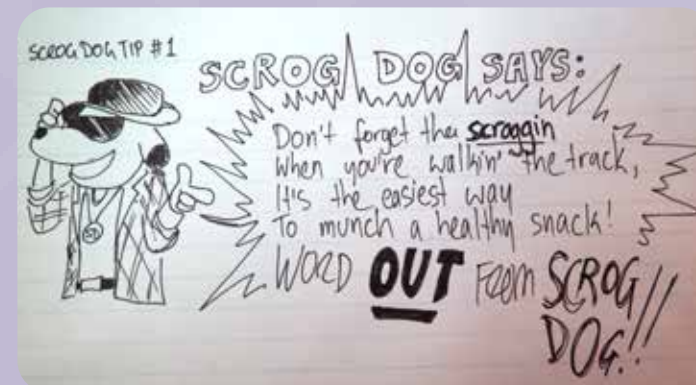 SCROG DOG TIP #1
SCROG DOG SAYS:
Don't forget the scroggin
when you're walkin' the track,
It's the easiest way
To munch a healthy snack!
WORD OUT FROM SCROG
DOG!!